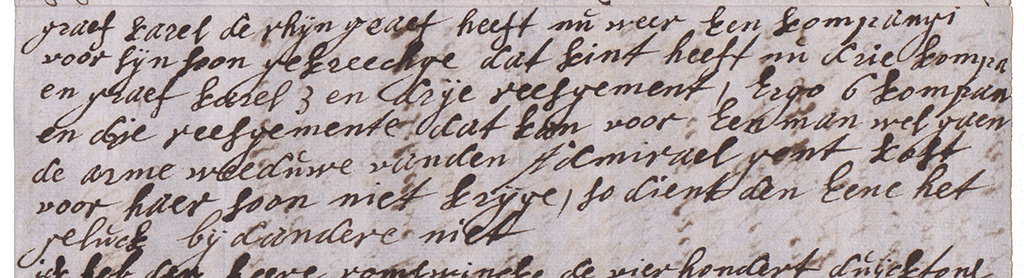 graef karel de rhijn graef heeft nu weer Een kompangi
voor syn soon gekreechge dat kint heeft nu drie kompa
en graef karel 3 en drije reesgement, Ergo 6 kompan
en drie reesgemente dat kan voor Een man wel
de arme weeduwe vanden Admirael gent kost
voor haer soon niet krijge, so dient den Eene het
geluck bij dandere niet
ick heb den heere de vierhondert